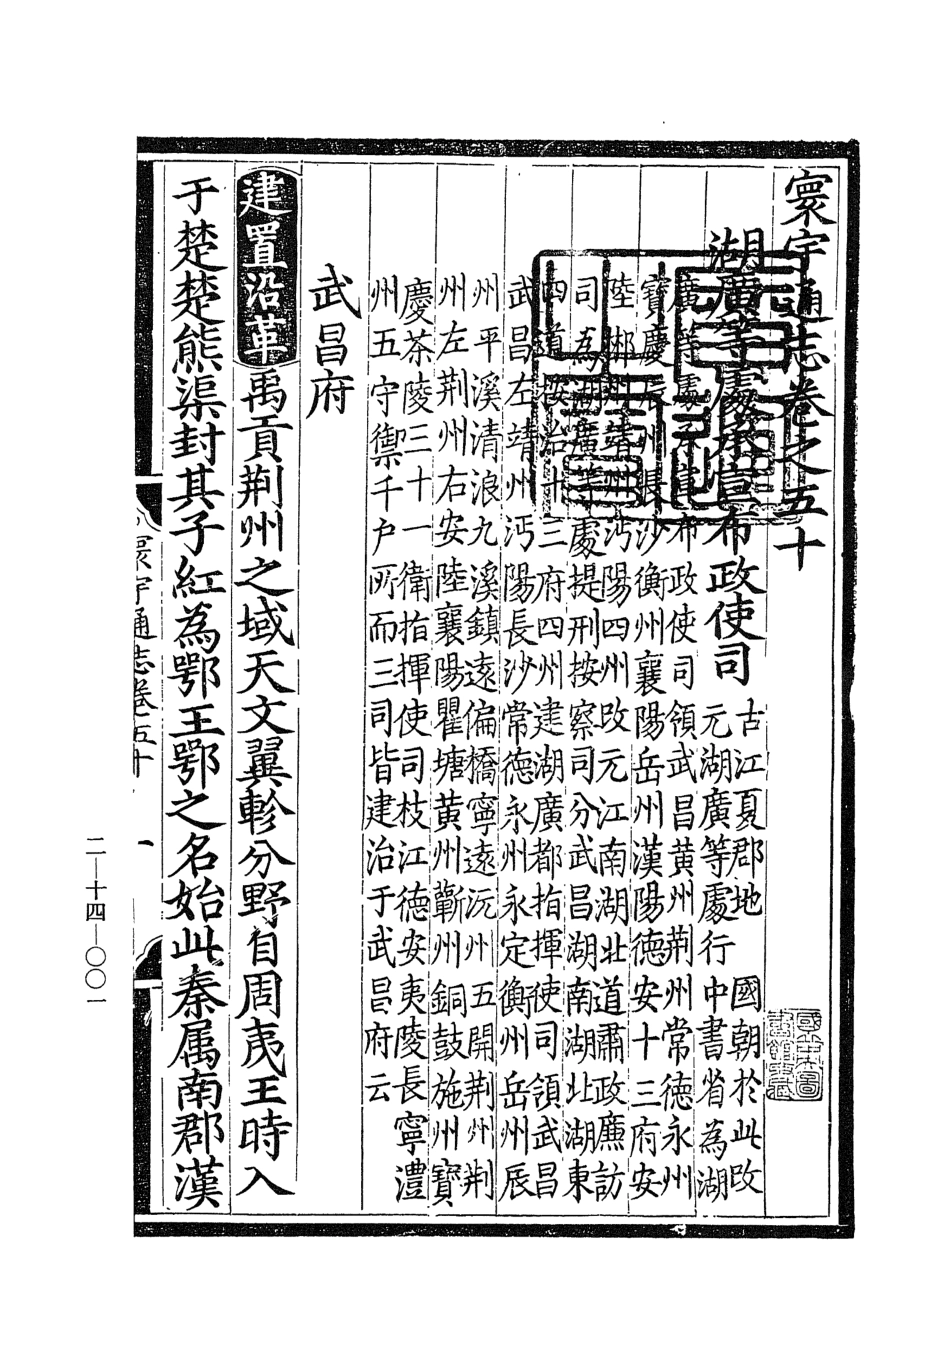 寰宇通志卷之五十
湖廣等處承宣布政使司
古江夏郡地 國朝於此改
元湖廣等處行中書省為湖
廣等處承宣布政使司領武昌黃州荆州常德永州
寶慶辰州長沙衡州襄陽岳州漢陽德安十三府安
陸郴州靖州沔陽四州改元江南湖北道肅政廉訪
司為湖廣等處提刑按察司分武昌湖南湖北湖東
四道按治十三府四州建湖廣都指揮使司領武昌
武昌左靖州沔陽長沙常德永州永定衡州岳州辰
州平溪清浪九溪鎮遠偏橋寧遠沅州五開荆州荆
州左荆州右安陸襄陽瞿塘黃州蘄州銅鼓施州寶
慶茶陵三十一衛指揮使司枝江德安夷陵長寧澧
州五守禦千戶所而三司皆建治于武昌府云
武昌府
建置沿革禹貢荆州之域天文翼軫分野自周夷王時入
于楚楚熊渠封其子紅為鄂王鄂之名始此秦属南郡漢
寰宇通志卷五十 一
二—十四—〇〇一